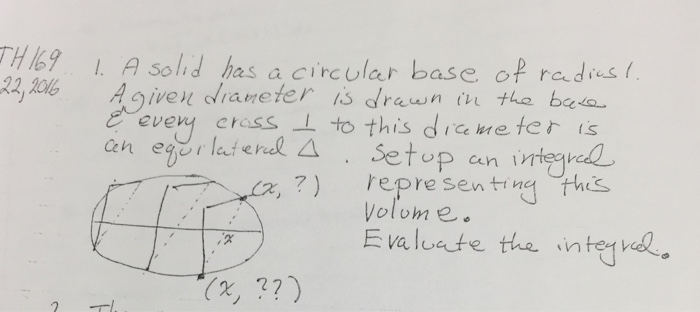 TH 169
22, 2016
1. A solid has a circular base of radius 1.
A given diameter is drawn in the base
& every cross ⊥ to this diameter is
an equilateral △ . Set up an integral
representing this
volume.
Evaluate the integral.
(x, ?)
x
(x, ??)
2